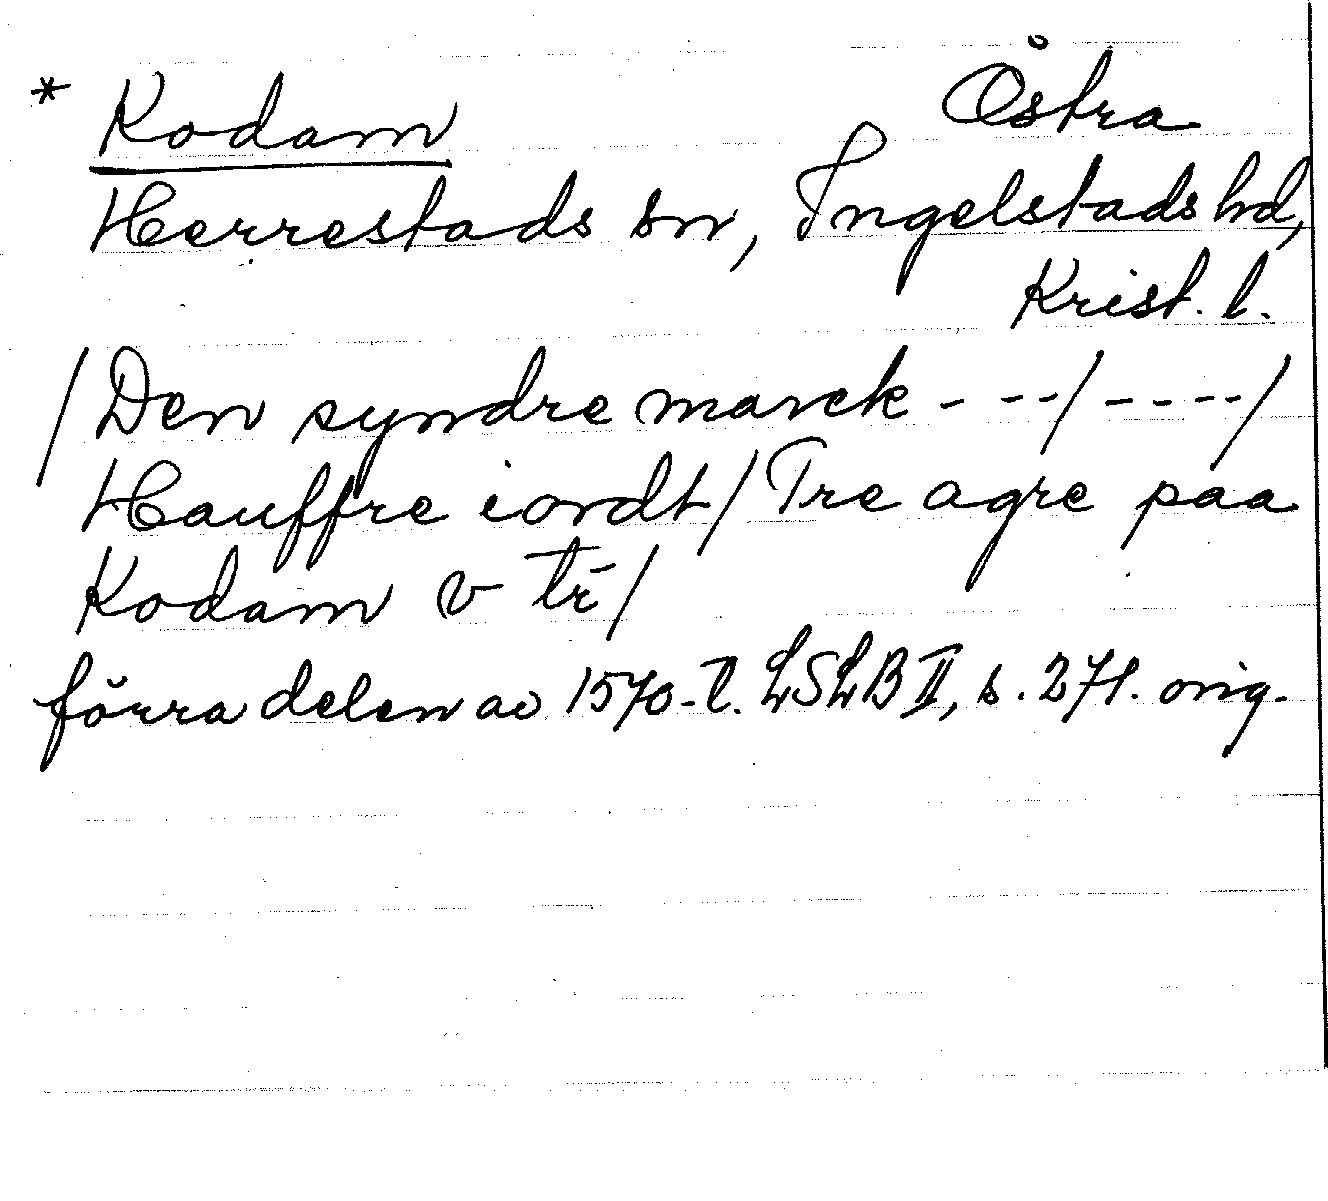 * Kodam Östra
Herrestads sn, Ingelstads hd,
Krist. l.
/Den syndre marck - - -/- - - -/
Hauffre iordt/Tre agre paa
Kodam v tr̄/
förra delen av 1570-t. LSLB II, s. 271. orig.